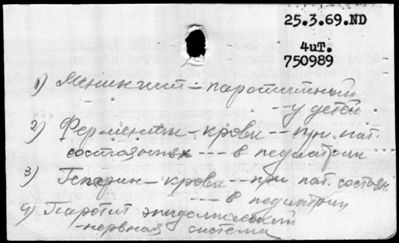 25.3.69.ND
4иТ.
750989
1) Менингит - паротитный
-- у детей
2) Ферменты - крови -- при пат.
состояниях --- в педиатрии
3) Гепарин - крови -- при пат. состоян.
-- в педиатрии
4) Паротит эпидемический
- нервная система